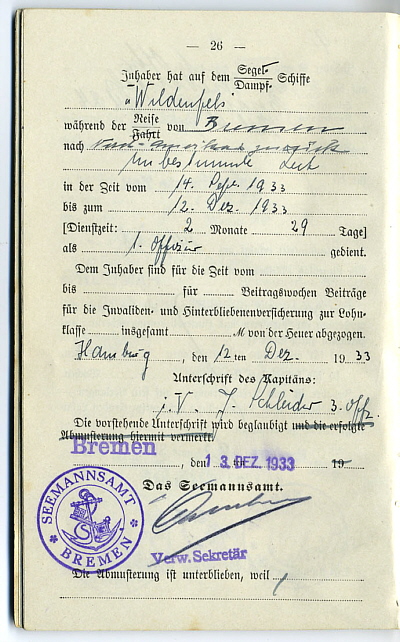 — 26 —
Inhaber hat auf dem Segel- Schiffe
Dampf-
"Wildenfels"
während der Reise von Bremen
Fahrt
nach zurück
Unbestimmte Zeit
in der Zeit vom 14. Sept. 1933
bis zum 12. Dez. 1933
[Dienstzeit: 2 Monate 29 Tage]
als 1. Offizier gedient.
Dem Inhaber sind für die Zeit vom
bis für Beitragswochen Beiträge
für die Invaliden- und Hinterbliebenenversicherung zur Lohn-
klasse insgesamt M von der Heuer abgezogen.
Hamburg, den 12ten Dez. 1933
Unterschrift des Kapitäns:
i. V. J. 3. Offz.
Die vorstehende Unterschrift wird beglaubigt und die erfolgte
Abmusterung hiermit vermerkt.
Bremen, den 13. DEZ. 1933 19
Das Seemannsamt.
SEEMANNSAMT
BREMEN
Verw. Sekretär
Die Abmusterung ist unterblieben, weil